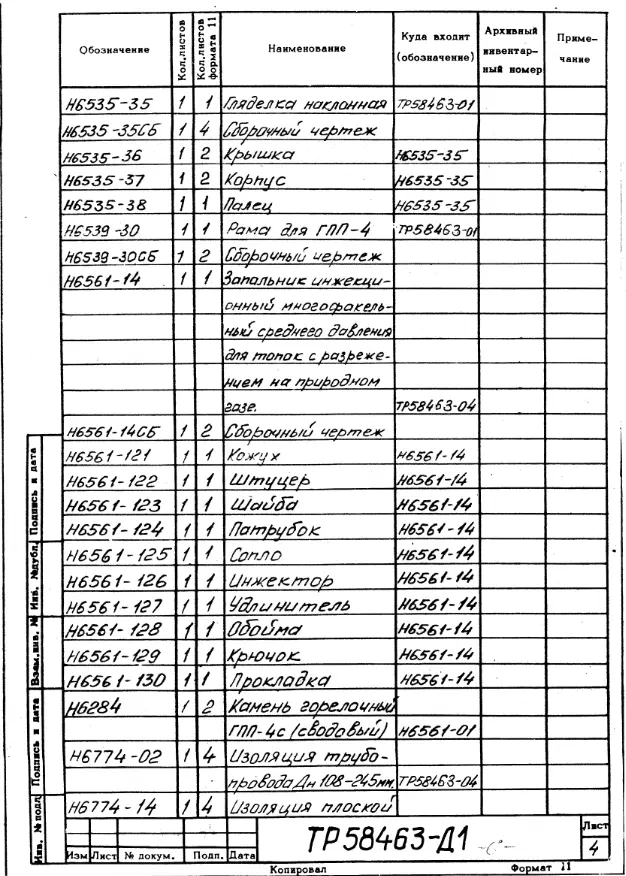 Обозначение Кол.листов Кол.листов формата 11 Наименование Куда входит (обозначение) Архивный инвентарный номер Примечание
Н6535-35 1 1 Гляделка наклонная ТР58463-01
Н6535-35СБ 1 4 Сборочный чертеж
Н6535-36 1 2 Крышка Н6535-35
Н6535-37 1 2 Корпус Н6535-35
Н6535-38 1 1 Палец Н6535-35
Н6539-30 1 1 Рама для ГПП-4 ТР58463-01
Н6539-30СБ 1 2 Сборочный чертеж
Н6561-14 1 1 Запальник инжекци-
онный многофакель-
ный среднего давления
для топок с разреже-
нием на природном
газе. ТР58463-04
Н6561-14СБ 1 2 Сборочный чертеж
Н6561-121 1 1 Кожух Н6561-14
Н6561-122 1 1 Штуцер Н6561-14
Н6561-123 1 1 Шайба Н6561-14
Н6561-124 1 1 Патрубок Н6561-14
Н6561-125 1 1 Сопло Н6561-14
Н6561-126 1 1 Инжектор Н6561-14
Н6561-127 1 1 Удлинитель Н6561-14
Н6561-128 1 1 Обойма Н6561-14
Н6561-129 1 1 Крючок Н6561-14
Н6561-130 1 1 Прокладка Н6561-14
Н6284 1 2 Камень горелочный
ГПП-4с (сводовый) Н6561-01
Н6774-02 1 4 Изоляция трубо-
провода Дн 108-245мм. ТР58463-04
Н6774-14 1 4 Изоляция плоской
Подпись и дата
Инв. №дубл.
Взам.инв. №
Подпись и дата
Инв. №подл
Изм Лист № докум. Подп. Дата
ТР58463-Д1
Лист
4
Копировал Формат 11